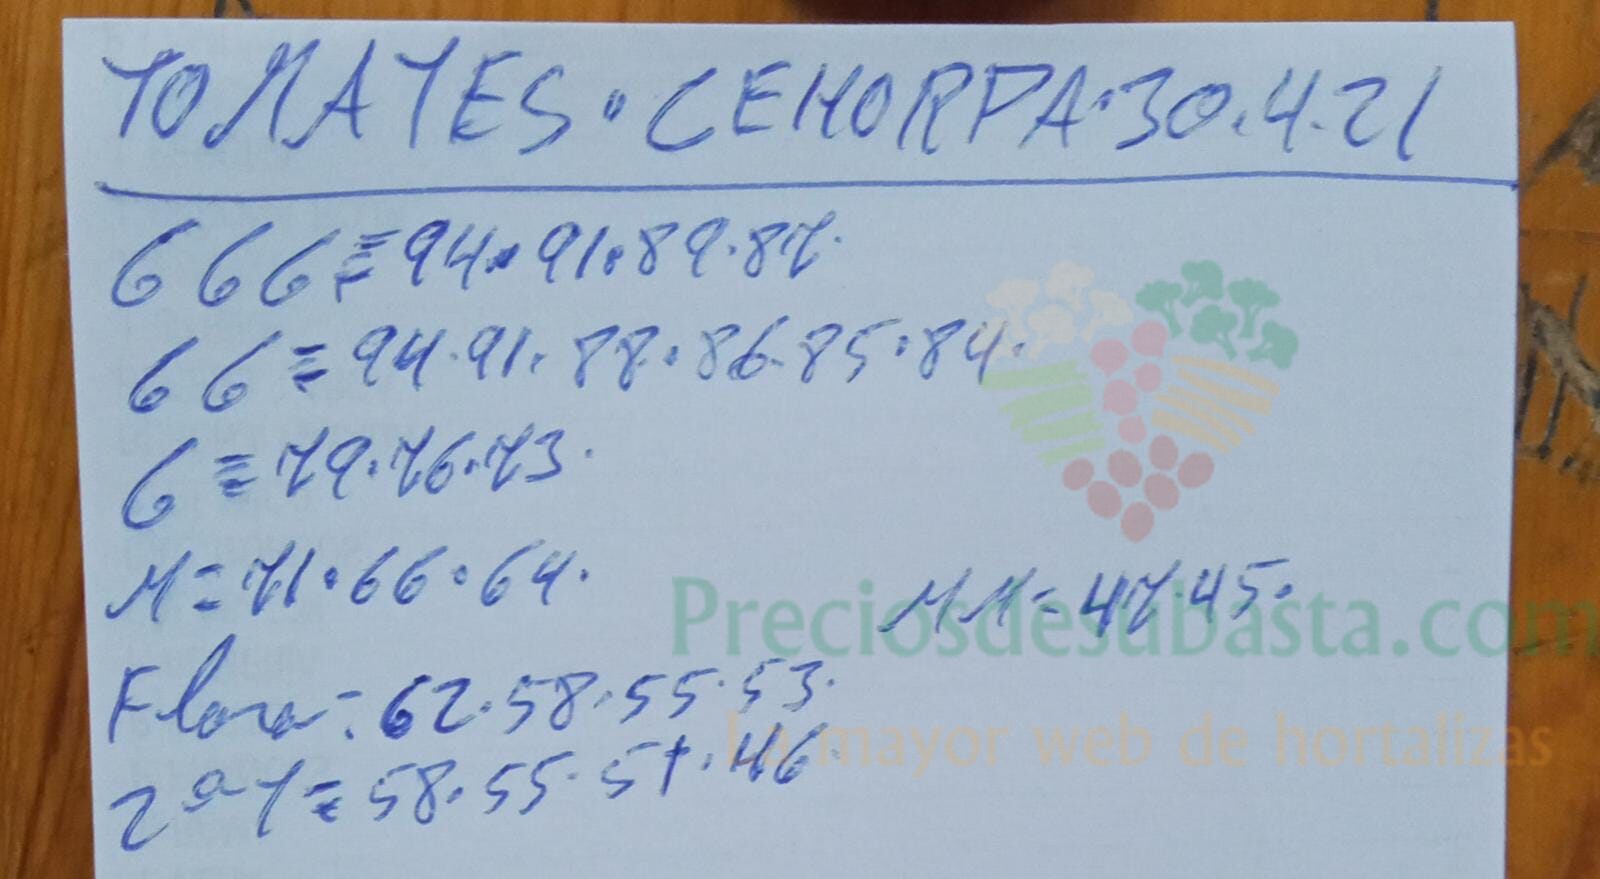 TOMATES · CEHORPA · 30.4.21
666 = 94 · 91 · 89 · 87 ·
66 = 94 · 91 · 88 · 86 · 85 · 84 ·
6 = 79 · 76 · 73 ·
M = 71 · 66 · 64 ·
MM = 47 · 45 ·
Preciosdesubasta.com
Flora = 62 · 58 · 55 · 53 ·
La mayor web de hortalizas
2ª T = 58 · 55 · 51 · 46 ·